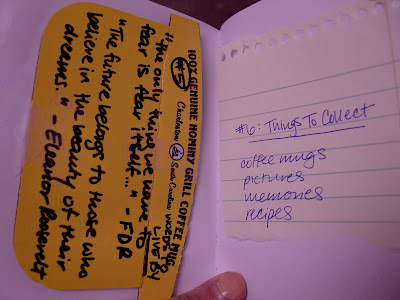 100% GENUINE HOMINY GRILL COFFEE MUG
#5
Charleston South Carolina
WORDS TO
LIVE BY
"the only thing we have to
fear is fear itself..." - FDR
"The future belongs to those who
believe in the beauty of their
dreams." - Eleanor Roosevelt
#6: Things To Collect
coffee mugs
pictures
memories
recipes